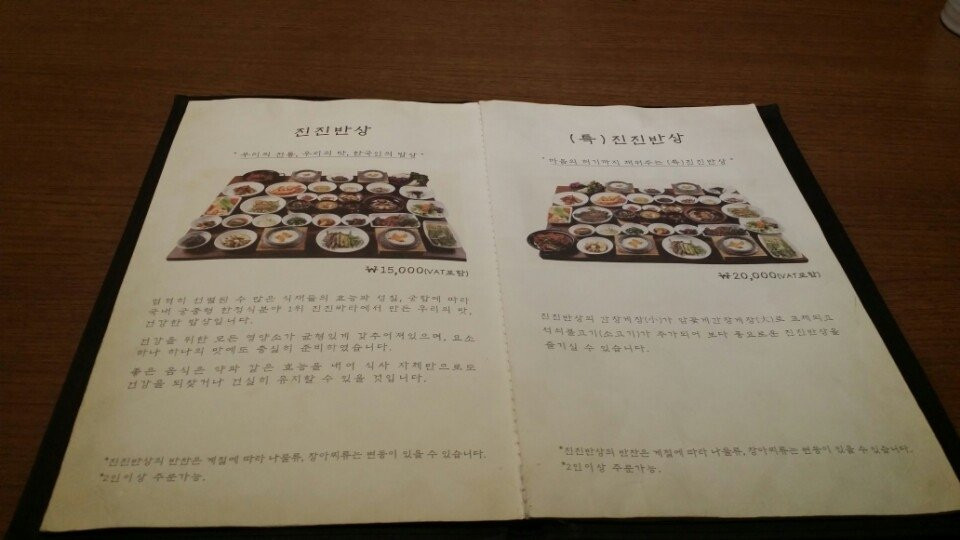 진진반상
"우리의 전통, 우리의 맛, 한국인의 밥상"
₩15,000(VAT포함)
엄격히 선별된 수 많은 식재들의 효능과 성질, 궁합에 따라
국내 궁중형 한정식분야 1위 진진바라에서 만든 우리의 맛,
건강한 밥상입니다.
건강을 위한 모든 영양소가 균형있게 갖추어져있으며, 요소
하나 하나의 맛에도 충실히 준비하였습니다.
좋은 음식은 약과 같은 효능을 내어 식사 자체만으로도
건강을 되찾거나 건실히 유지할 수 있을 것입니다.
*진진반상의 반찬은 계절에 따라 나물류, 장아찌류는 변동이 있을 수 있습니다.
*2인이상 주문가능.
(특)진진반상
"마음의 허기까지 채워주는 (특)진진반상"
₩20,000(VAT포함)
진진반상의 간장게장(小)가 암꽃게간장게장(大)로 교체되고
석쇠불고기(소고기)가 추가되어 보다 풍요로운 진진반상을
즐기실 수 있습니다.
*진진반상의 반찬은 계절에 따라 나물류, 장아찌류는 변동이 있을 수 있습니다.
*2인이상 주문가능.